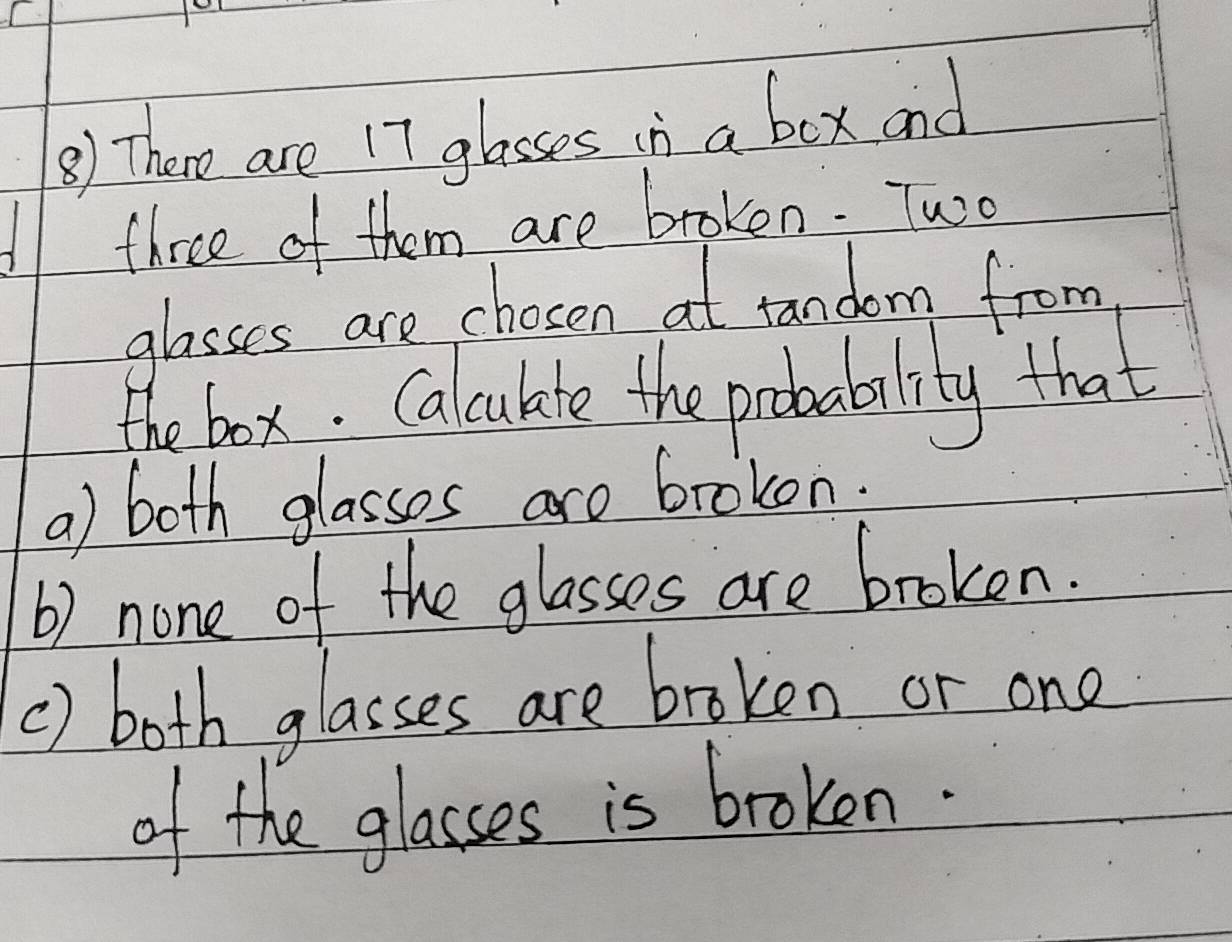 8) There are 17 glasses in a box and
three of them are broken. Two
glasses are chosen at random from
the box. Calculate the probability that
a) both glasses are broken.
b) none of the glasses are broken.
c) both glasses are broken or one
of the glasses is broken.